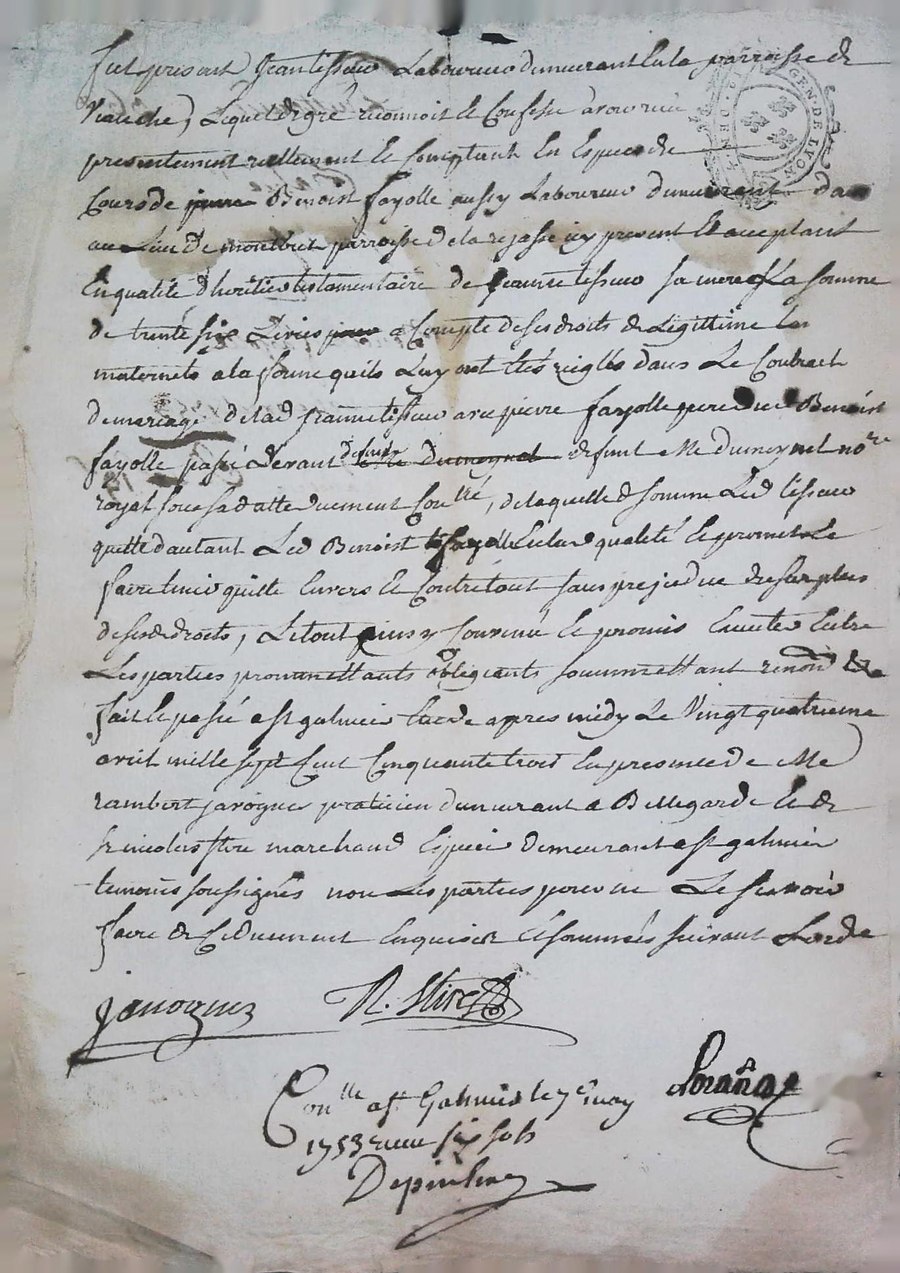 Fut present Jean tisseur Laboureur demeurant en la parroisse de
Viauche, Lequel de gré reconnoit et Confesse avoir receu
presentement reellement et Comptant En Espece de
Cours de Benoist fayolle aussy Laboureur demeurant
au Lieu de montbret parroisse de la rejasse icy present Et acceptant
En qualité d'heritier testamentaire de Jeanne tisseur sa mere La somme
de trente six Livres a Compte de ses droits de Legittime
maternels a la somme quils Luy ont Etés reiglés dans Le Contract
de mariage de lad Jeanne tisseur avec pierre fayolle pere dud Benoist
fayolle passé devant defunt Me Dumeynet nore
royal sous sa datte duement Conllé, de laquelle d somme Led tisseur
quitte d'autant Led Benoist fayolle En lad qualité Et promet Le
faire tenir quitte Envers Et Contre tout sans prejudice du surplus
de sesd droits, Le tout ainsy Convenu Et promis Executer Entre
Les parties promettants obligeants soummettant renond &a
fait et passé a st galmier Etude apres midy Le Vingt quatrieme
avril mille sept Cent Cinquante trois En presence de Me
rambert javogues praticien demeurant a Bellegarde Et de
sr nicolas stire marchand Epicier demeurant a st galmier
temoins soussignés non Les parties pour ne Le scavoir
faire de Ce duement Enquises Et sommées suivant Lorde
javogues N. Stire
Conlle a st Galmier le 7e may
1753 receu six sols
GEN. DE LYON